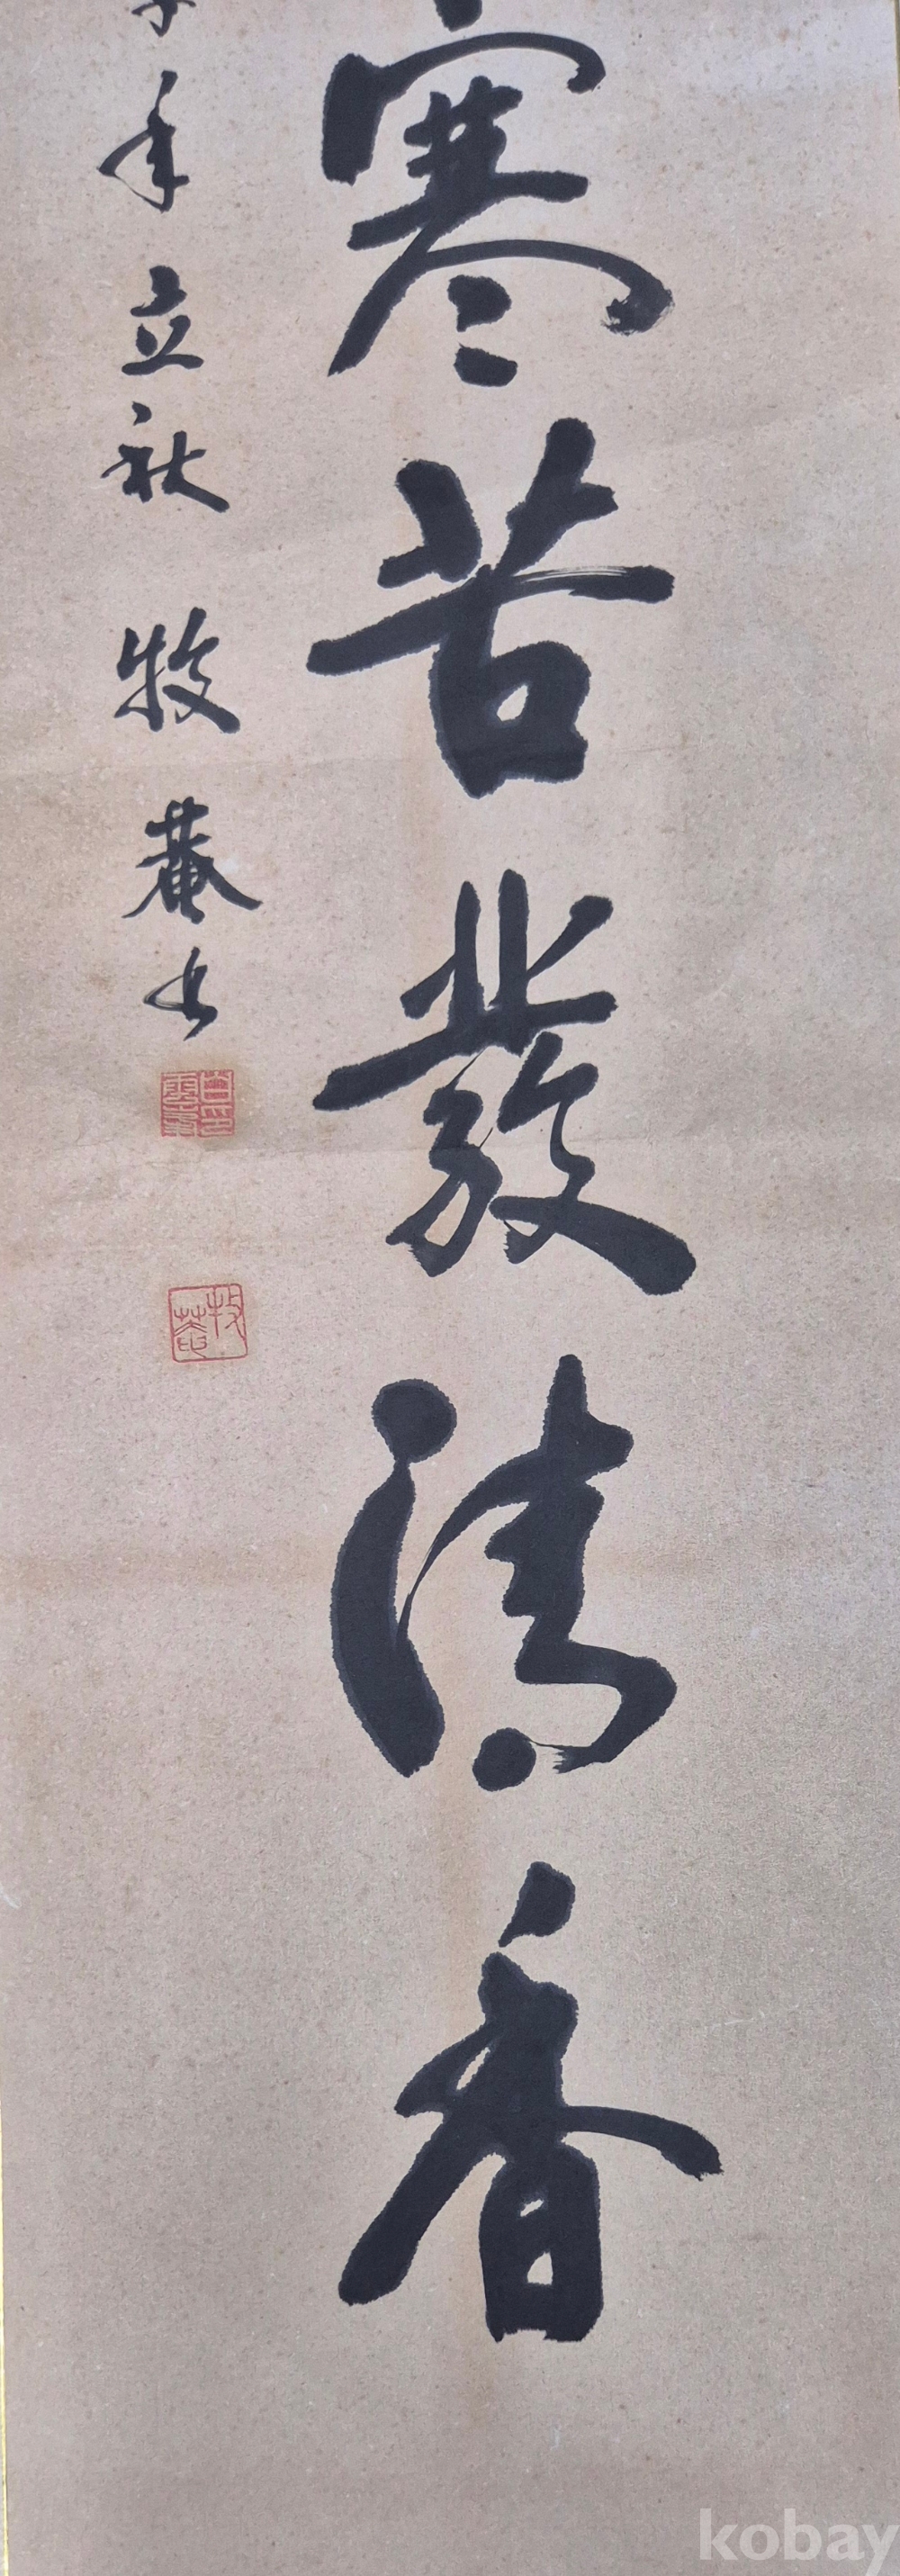 寒苦發清香
年立秋 牧菴
kobay